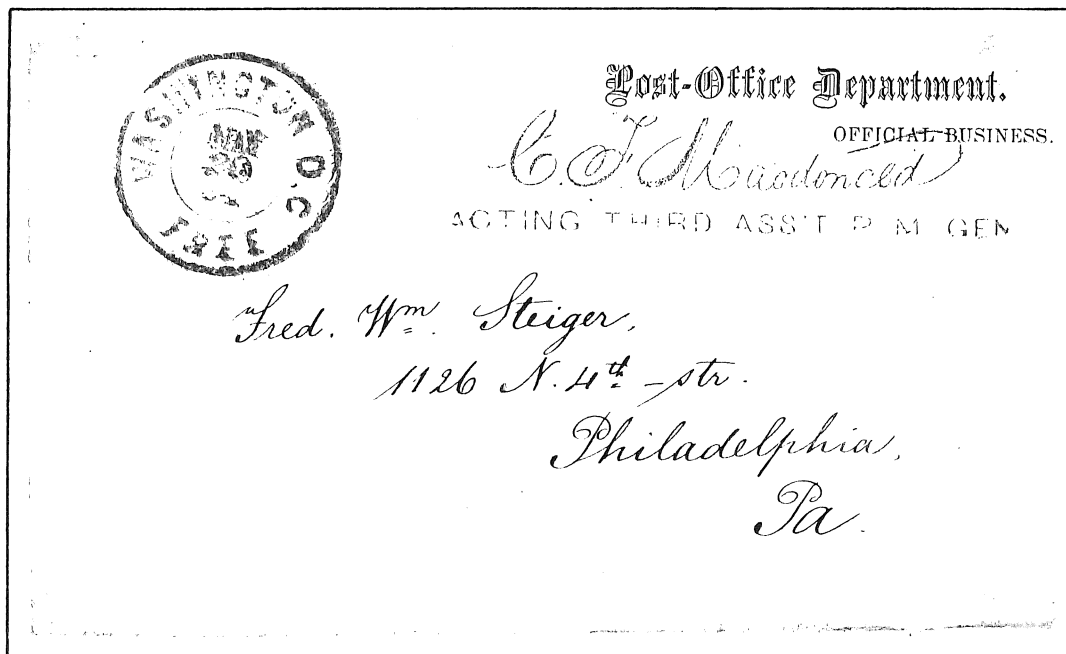 WASHINGTON D.C.
FREE
Post-Office Department.
OFFICIAL BUSINESS.
C. F. Macdonald
ACTING THIRD ASS'T P. M. GEN
Fred. Wm. Steiger,
1126 N. 4th - str.
Philadelphia,
Pa.